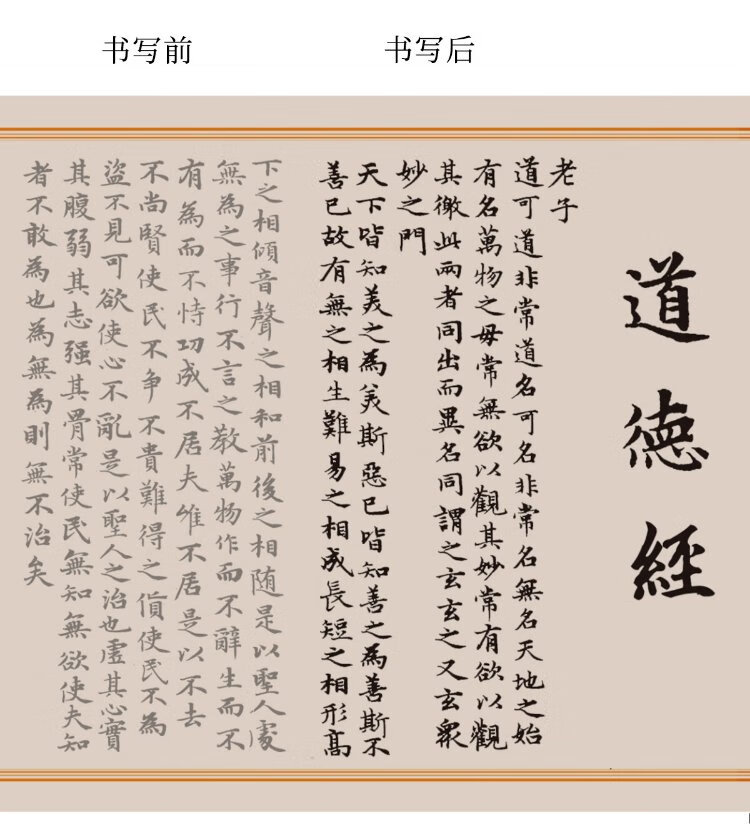 书写前
书写后
道德經
老子
道可道非常道名可名非常名無名天地之始
有名萬物之母常無欲以觀其妙常有欲以觀
其徼此兩者同出而異名同謂之玄玄之又玄衆
妙之門
天下皆知美之為美斯惡已皆知善之為善斯不
善已故有無之相生難易之相成長短之相形高
下之相傾音聲之相和前後之相随是以聖人處
無為之事行不言之教萬物作而不辭生而不
有為而不恃功成不居夫唯不居是以不去
不尚賢使民不争不貴難得之貨使民不為
盜不見可欲使心不亂是以聖人之治也虛其心實
其腹弱其志强其骨常使民無知無欲使夫知
者不敢為也為無為則無不治矣